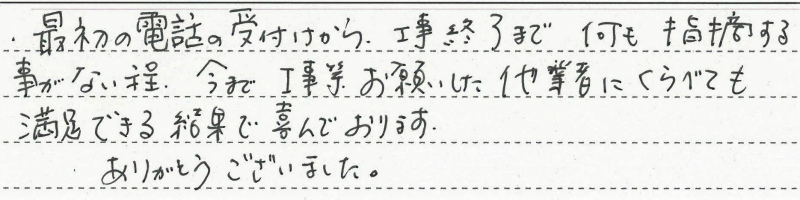 ・最初の電話の受付けから、工事終了まで 何も指摘する
事がない程、今まで工事等お願いした他業者にくらべても
満足できる結果で喜んでおります。
ありがとうございました。